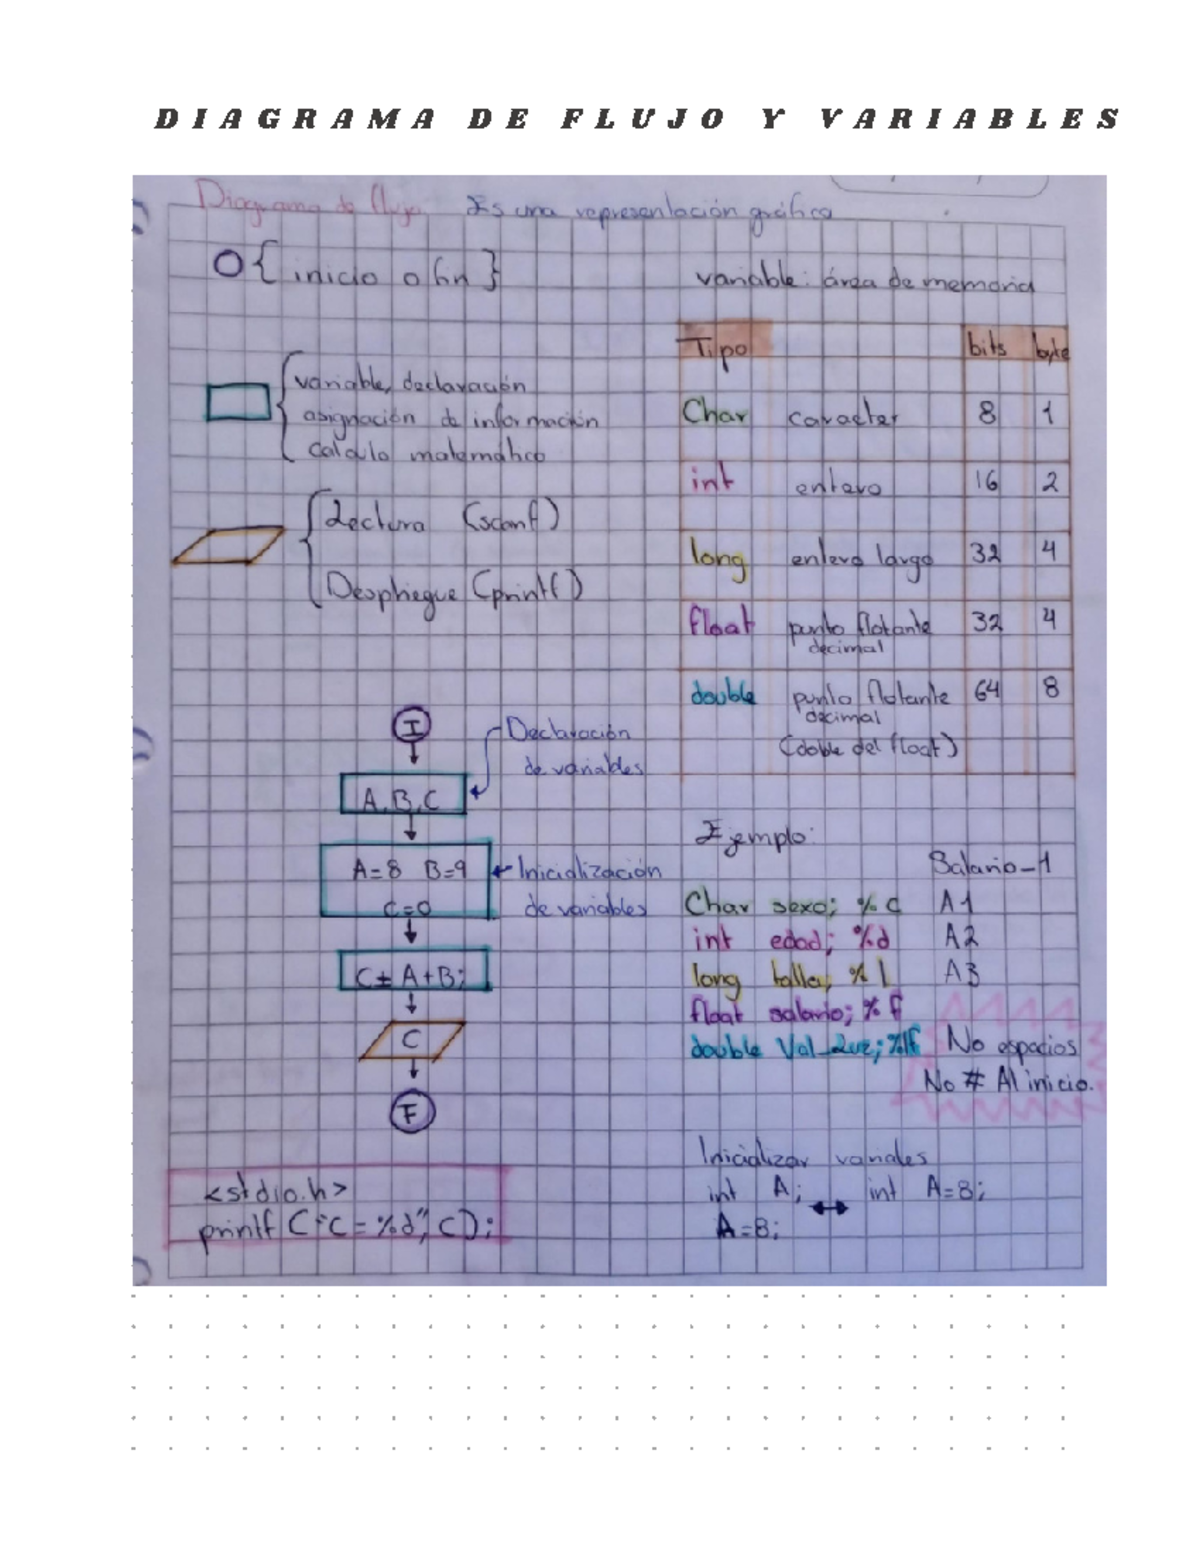 DIAGRAMA DE FLUJO Y VARIABLES
Diagrama de flujo. Es una representación gráfica
{ inicio o fin }
variable, declaración
asignación de información
Calculo matemático
Lectura (scanf)
Despliegue (printf)
variable: área de memoria
Tipo bits byte
Char caracter 8 1
int entero 16 2
long entero largo 32 4
float punto flotante decimal 32 4
double punto flotante decimal (doble del float) 64 8
I
Declaración
de variables
A, B, C
A=8 B=9
C=0
Inicialización
de variables
C= A+B;
C
F
<stdio.h>
printf ("C = %d", C);
Ejemplo:
Salario-1
Char sexo; %c A1
int edad; %d A2
long talla; %l A3
float salario; %f
double Val_Luz; %lf
No espacios
No # Al inicio.
Inicializar variales
int A; int A=8;
A=8;